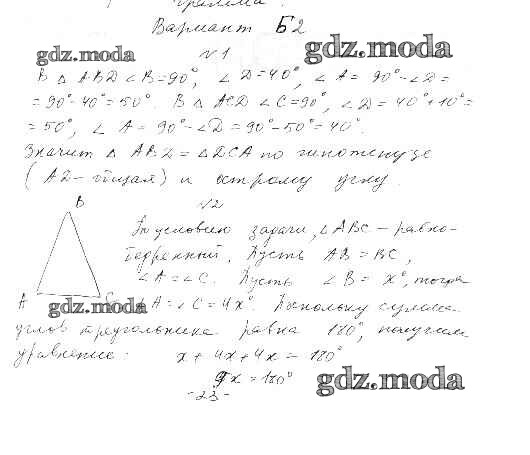 грамма.
Вариант Б2
gdz.moda
№1
gdz.moda
В △ ABD ∠B=90°, ∠D=40°, ∠A= 90°-∠D=
=90°-40°=50°. В △ ACD ∠C=90°, ∠D= 40°+10°=
=50°, ∠ A= 90°-∠D=90°-50°=40°.
Значит △ ABD = △DCA по гипотенузе
(AD-общая) и острому углу.
№2
B
По условию задачи, ∠ABC - равно-
бедренный. Пусть AB = BC,
∠A=∠C. Пусть ∠B= x°, тогда
A C ∠A=∠C=4x°. Поскольку сумма
gdz.moda
углов треугольника равна 180°, получим
уравнение: x+4x+4x=180°
9x=180°
gdz.moda
-23-